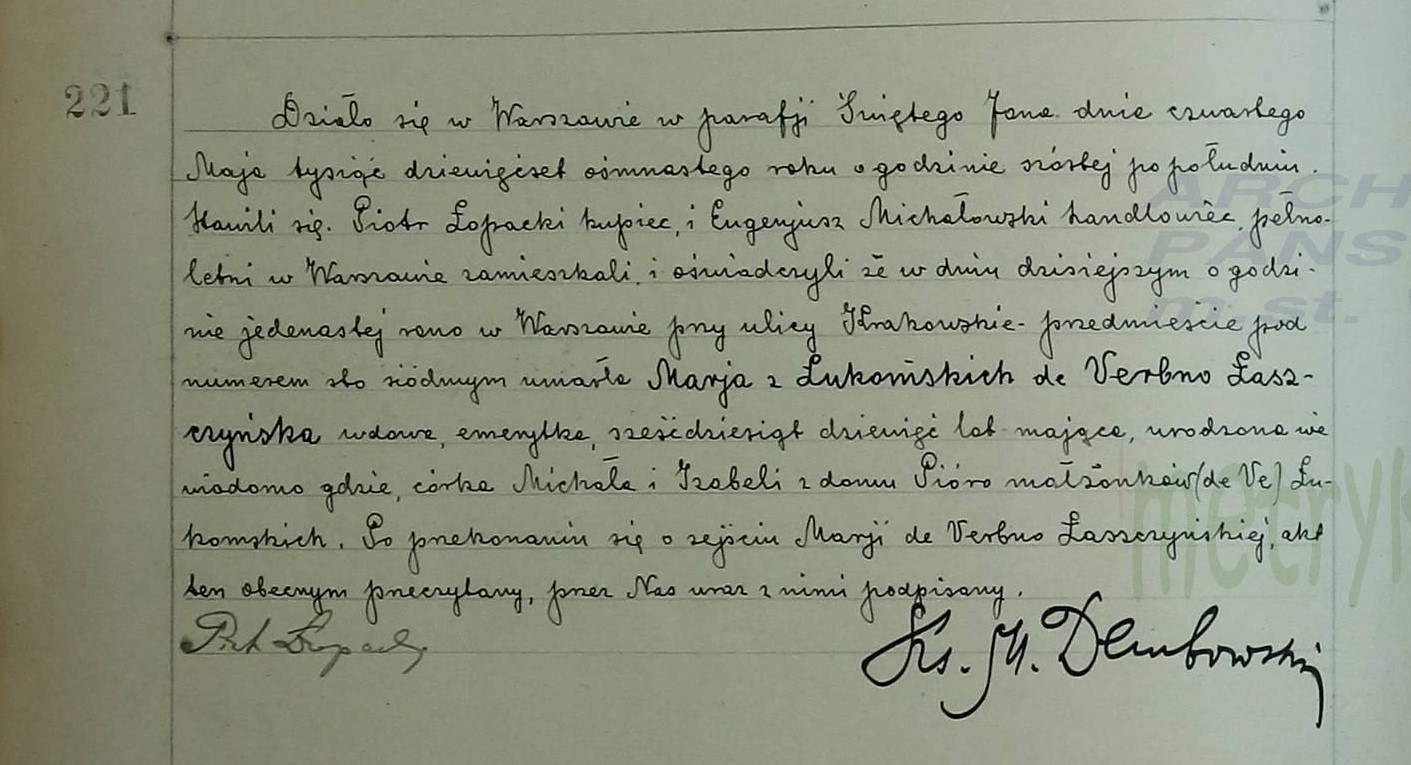 221
Działo się w Warszawie w parafji Świętego Jana dnia czwartego
Maja tysiąc dziewięćset ośmnastego roku o godzinie szóstej po południu.
Stawili się. Piotr Łopacki kupiec, i Eugenjusz Michałowski handlowiec, pełno-
letni w Warszawie zamieszkali, i oświadczyli że w dniu dzisiejszym o godzi-
nie jedenastej rano w Warszawie przy ulicy Krakowskie-przedmieście pod
numerem sto siódmym umarła Marja z Łukomskich de Verbno Łasz-
czyńska wdowa, emerytka, sześćdziesiąt dziewięć lat mająca, urodzona nie
wiadomo gdzie, córka Michała i Izabeli z domu Pióro małżonków (de Ve) Łu-
komskich. Po przekonaniu się o zejściu Marji de Verbno Łaszczyńskiej, akt
ten obecnym przeczytany, przez Nas wraz z nimi podpisany.
Ks. M. Dembowski
ARCH
PAŃS
m. st.
metryk